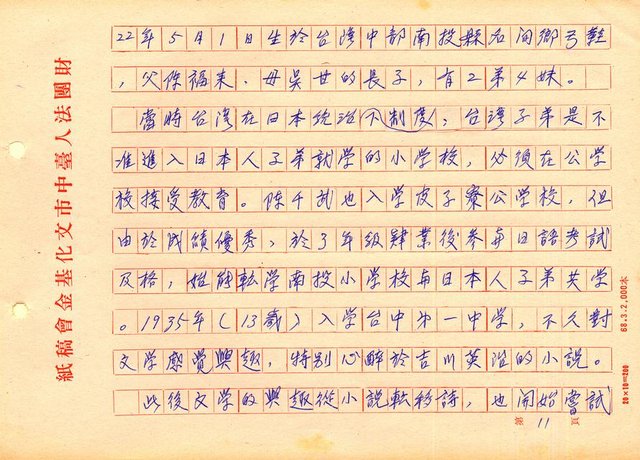 22年5月1日生於台湾中部南投縣名间鄉弓鞋
，父陈福来、母吳甘的長子，有2弟4妹。
當時台湾在日本統治下制度，台湾子弟是不
准進入日本人子弟就学的小学校，必須在公学
校接受教育。陈千武也入学皮子寮公学校，但
由於成績優秀，於3年級肄業後參与日語考試
及格，始能転学南投小学校与日本人子弟共学
。1935年（13歲）入学台中第一中学，不久對
文学感覺興趣，特別心醉於吉川英治的小說。
此後文学的興趣從小說転移詩，也開始嘗試
財團法人臺中市文化基金會稿紙
第 11 頁
20×10=200
68.3.2,000本